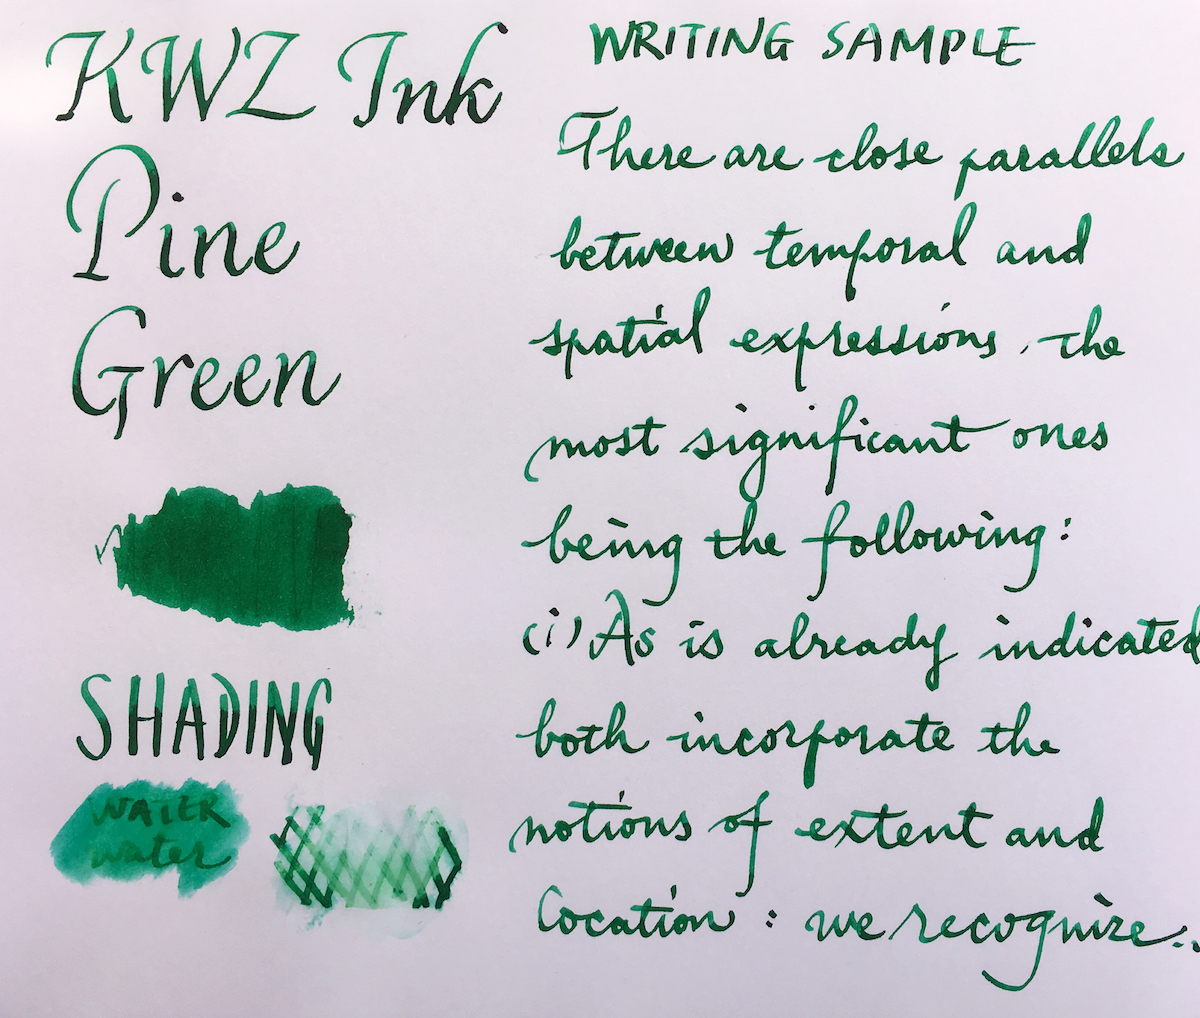 KWZ Ink
Pine
Green
SHADING
WATER
water
WRITING SAMPLE
There are close parallels
between temporal and
spatial expressions, the
most significant ones
being the following:
(i) As is already indicated
both incorporate the
notions of extent and
location : we recognize..